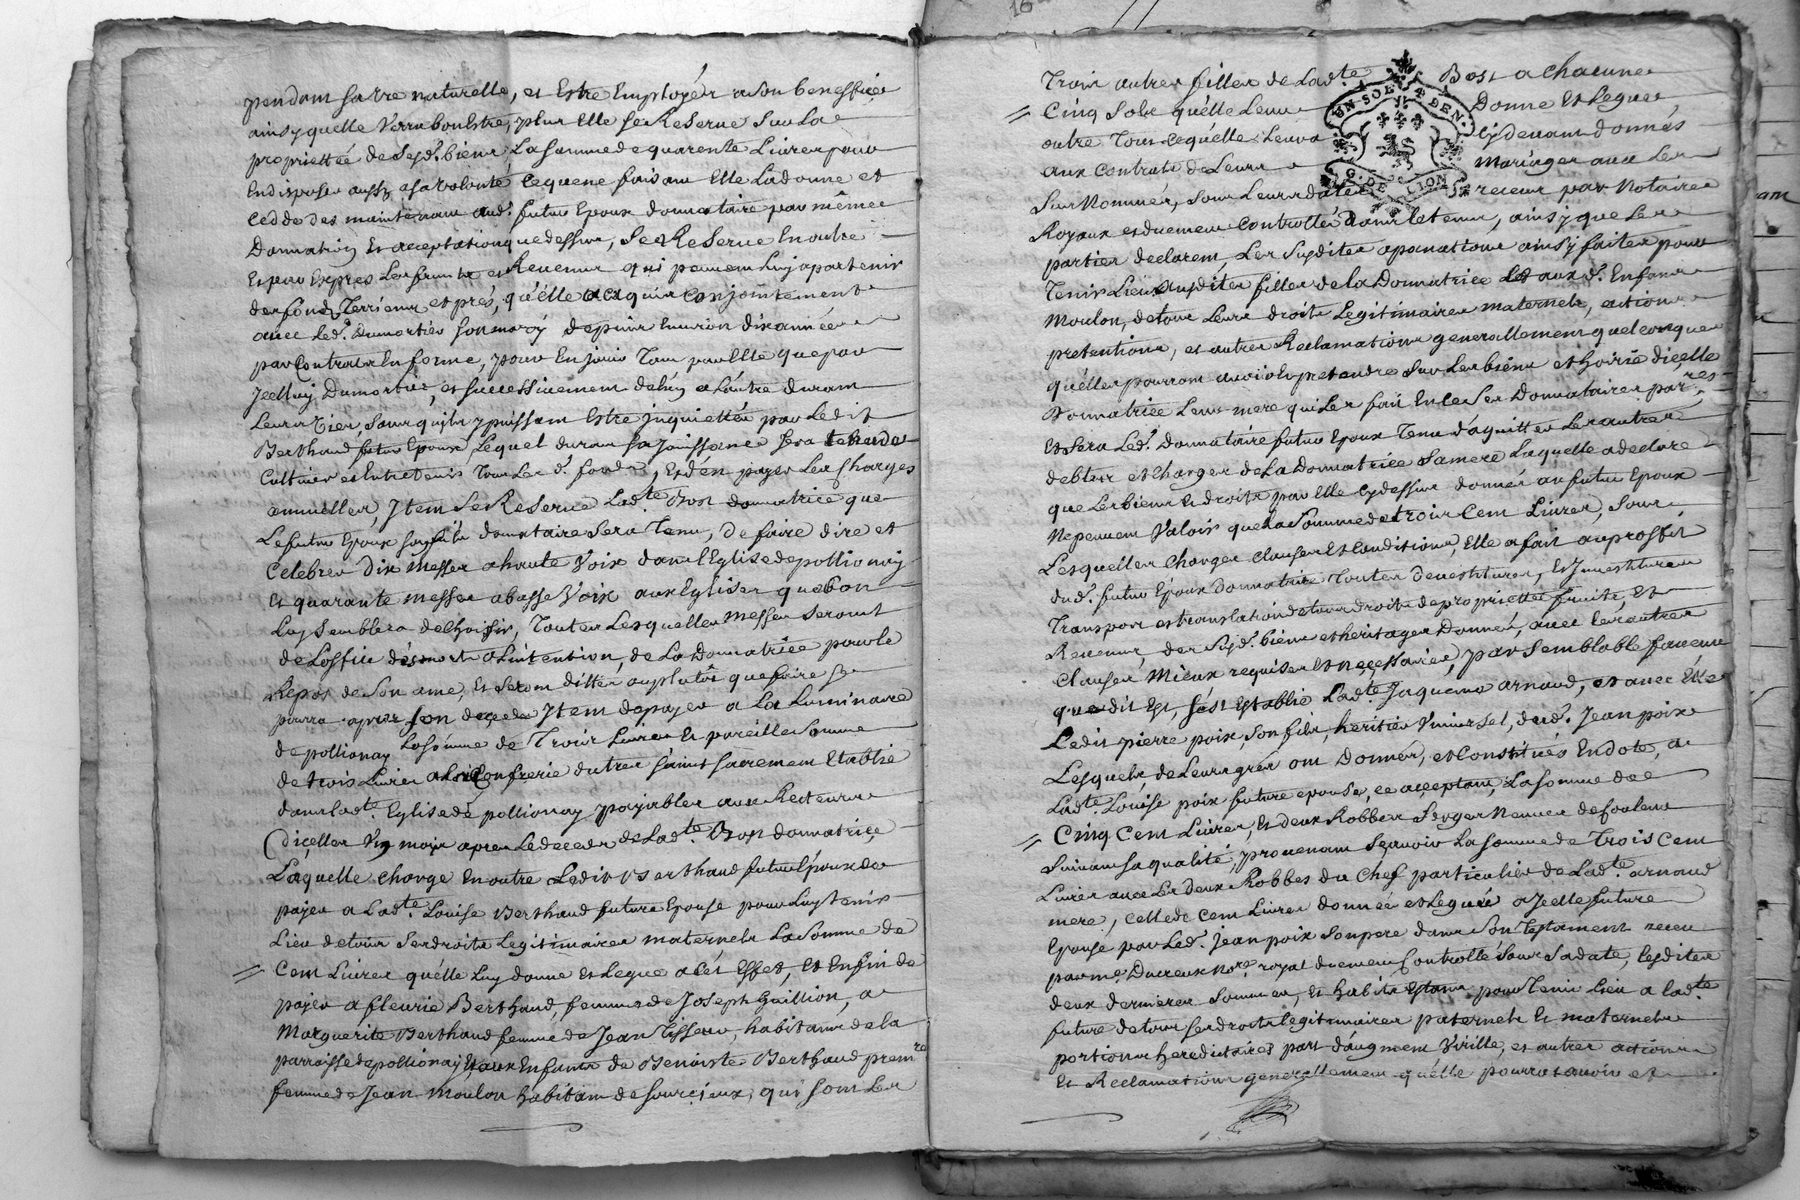 pendant sa vie naturelle, et Estre Employéz a son beneffice
ainsy quelle Verra bon Estre, plus Elle se Reserve Sur La
propriettée de Sesd. biens, La somme de quarente Livres pour
En disposer aussy a sa volonté, ce quene faisant Elle La donne et
Cedde des maintenant aud. futur Epoux donnataire par même
Donnation Et acceptation que dessus, Se Reserve En outre
Et par Expres Les fruits et Revenus qui peuvent Luy apartenir
des fonds, Terriens et prés, qu'elle a acquis conjointement
avec Led. Dumortier son mary depuis Environ dix années
par Contrats En forme, pour En jouir Tant par Elle que par
Jcelluy Dumortier, et successivement de L'un a L'autre durant
Leurs vies, sans qu'ils y puissent Estre jnquiettés par Ledit
Berthaud futur Epoux, Lequel durant sa jouissance sera tenu de
Cultiver et Entretenir Tous Les d. fonds, Et d'en payer Les Charges
annuelles, Jtem se Reserve Lad.te Bost donnatrice que
Le futur Epoux son fils donnataire sera Tenu, de faire dire et
Celebrer Dix Messes a haute Voix dans l'Eglise de pollionay
Et quarante messes a basse Voix aux Eglises que bon
Luy semblera de Choisir, Toutes Lesquelles Messes seront
de Loffice des morts a Lintention, de La Donnatrice pour le
Repos de Son ame, Et seront dittes au plutôt que faire se
pourra apres son deceds Jtem de payer a La Luminaire
de pollionay La somme de Trois Livres Et pareille somme
de trois Livres a La Confrerie du tres saint sacrement Etablie
dans Lad.te Eglise de pollionay payables aux Recteurs
d'icelles Un mois apres Le deceds de Lad.te Bost donnatrice
Laquelle charge En outre Ledit Berthaud futur Epoux de
payer a Lad.te Louise Berthaud future Epouse pour Luy tenir
Lieu de tous Ses droits Legitimaires maternels La Somme de
Cent Livres qu'elle Luy donne Et Legue a Cet Effet, Et Enfin de
payer a fleurie Berthaud, femme de Joseph Guillion, a
Marguerite Berthaud femme de Jean Tisseur, habitants de la
parroisse de pollionay, Et aux Enfants de Benoiste Berthaud prem.re
femme de Jean Moulon habitant de Sourcieux, qui sont Les
Trois autres filles de Lad.te Bost a chacune
Cinq Sols qu'elle Leur Donne Et Legue,
outre Tout ce qu'elle Leur a Cydevant donnés
aux Contrats de Leurs Mariages avec Les
Sus Nommés, sous Leurs dates receus par Notaires
Royaux et duement Controllés dans le tems, ainsy que Les
parties declarent, Les Susdites aponations ainsy faites pour
Tenir Lieu ausdites filles de la Donnatrice Et aux d. Enfans
Moulon, de tous Leurs droits Legitimaires maternels, actions
pretentions, et autres Reclamations generallement quelconques
qu'elles pourront avoir et pretendre Sur Les biens et hoirie dicelle
Donnatrice Leur mere qui Les fait En Ce Ses Donnataires par.res
Et Sera Led. Donnataire futur Epoux Tenu d'aquitter Les autres
debtes et Charges de La Donnatrice Sa mere Laquelle a declaré
que Les biens Et droits par Elle cy dessus donnés au futur Epoux
Ne peuvent Valoir que La Somme de trois Cent Livres, Sous
Lesquelles Charges Clauses Et Conditions, Elle a fait au proffit
dud. futur Epoux Donnatrice Toutes Devestitures, Et Jnvestitures
Transport et translation de tous droits de proprietté fruits, Et
Revenus des Susd. biens et heritages Donnés, avec Les autres
Clauses Mieux requises Et necessaires, par Semblable faveur
que dit Est, s'est Establie Lad.te Jaquema arnaud, et avec Elle
Ledit pierre poix, Son fils, heritier Universel, dud. Jean poix
Lesquels de Leurs grés ont Donnés, et Constitués En dote, a
Lad.te Louise poix future epouse, ce acceptant, La somme de
Cinq Cent Livres, Et deux Robbes Serges Neuves de Couleur
Suivant sa qualité, provenant Scavoir La somme de Trois Cent
Livres avec Les deux Robbes du Chef particulier de Lad.te arnaud
mere, celle de Cent Livres donnée et Leguée a Jcelle future
Epouse par Led. Jean poix Son pere dans Son Testament receu
par me. Ducreux No.re royal duement Controllé Sous Sa date, Lesdites
deux dernieres Sommes, Et habits Estant pour Tenir Lieu a Lad.te
future de tous Ses droits Legitimaires paternels Et maternels
portions hereditaires part d'augment, Virille, et autres actions
Et Reclamations generallement qu'elle pourrat avoir et
UN SOL 4 DEN.
G. DE LION